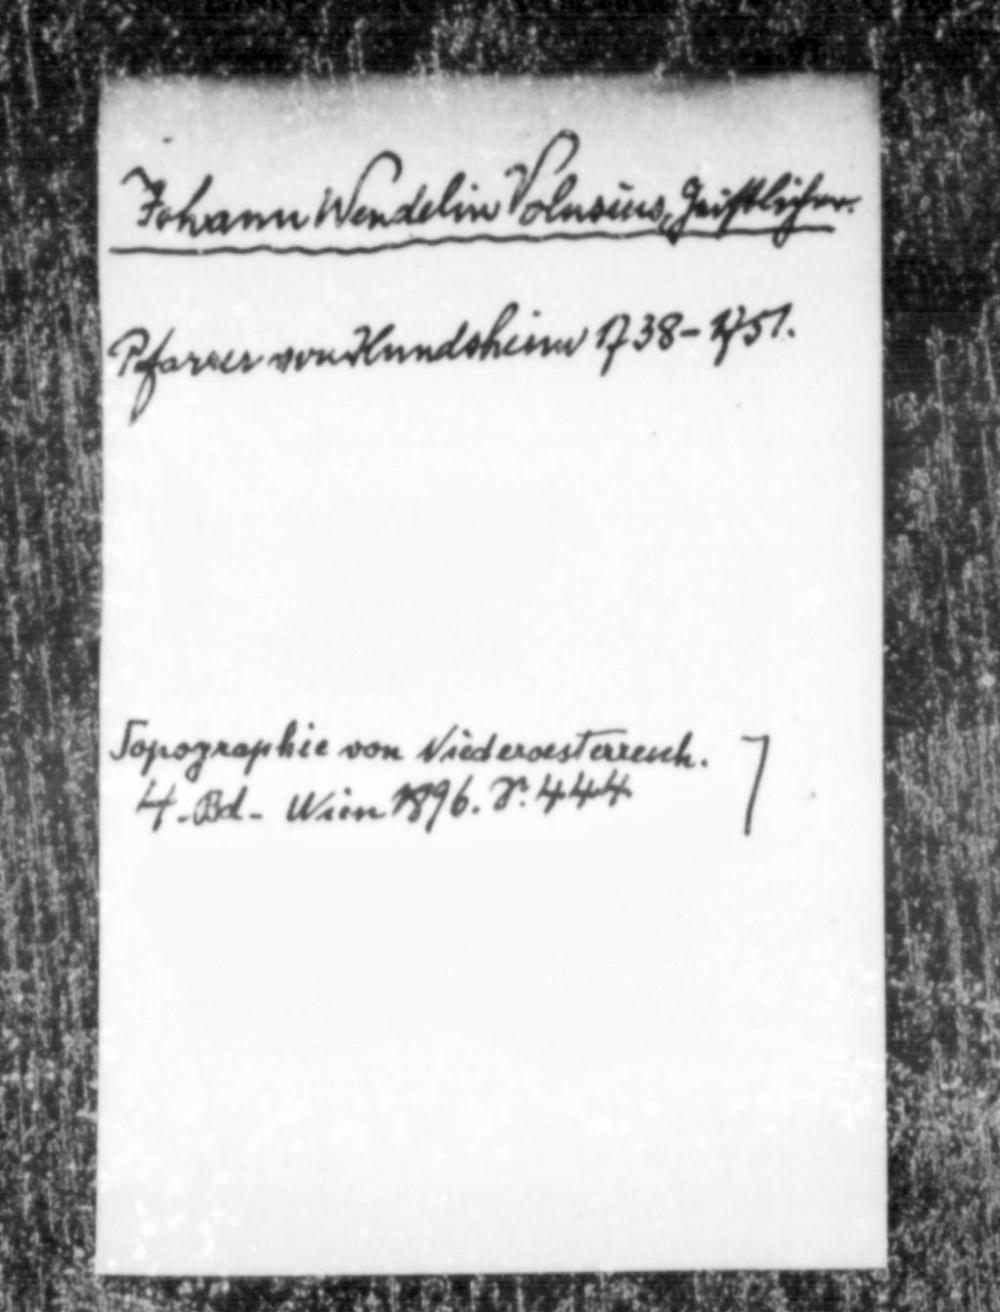 Johann Wendelin Volusius, Geistlicher.
Pfarrer von Hundsheim 1738-1751.
Topographie von Niederoesterreich.
4. Bd. Wien 1896. S. 444